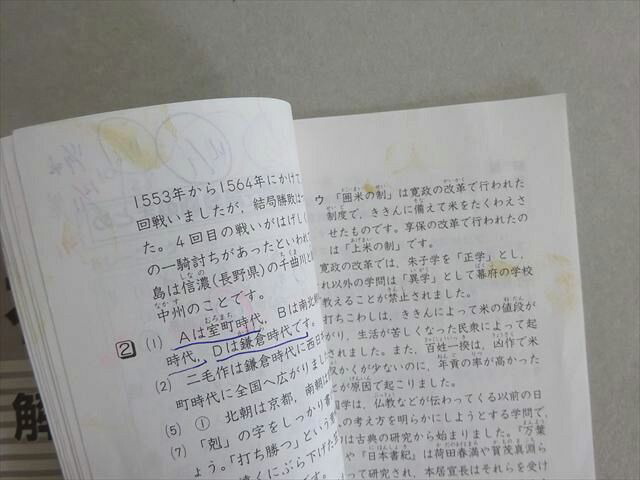 1553年から1564年にかけて
回戦いましたが，結局勝敗は
た。4回目の戦いがはげしく
の一騎討ちがあったといわれて
島は信濃(長野県)の千曲川と
中州のことです。
2 (1) Aは室町時代，Bは南北朝
時代，Dは鎌倉時代です。
(2) 二毛作は鎌倉時代に西日
町時代に全国へ広がりました
(5) ① 北朝は京都，南朝は
(7) 「剋」の字をしっかり書
よう。「打ち勝つ」という
にぶら下げた
ウ 「囲米の制」は寛政の改革で行われた
制度で，ききんに備えて米をたくわえさ
せたものです。享保の改革で行われたの
は「上米の制」です。
寛政の改革では，朱子学を「正学」とし，
れ以外の学問は「異学」として幕府の学校
教えることが禁止されました。
打ちこわしは，ききんによって米の値段が
がり，生活が苦しくなった民衆によって起
されました。また，百姓一揆は，凶作で米
穫かくが少ないのに，年貢の率が高かった
とが原因で起こりました。
国学は，仏教などが伝わってくる以前の日
人の考え方を明らかにしようとする学問で，
は古典の研究から始まりました。『万葉
や『日本書紀』は荷田春満や賀茂真淵ら
って研究され，本居宣長はそれらを受け
解